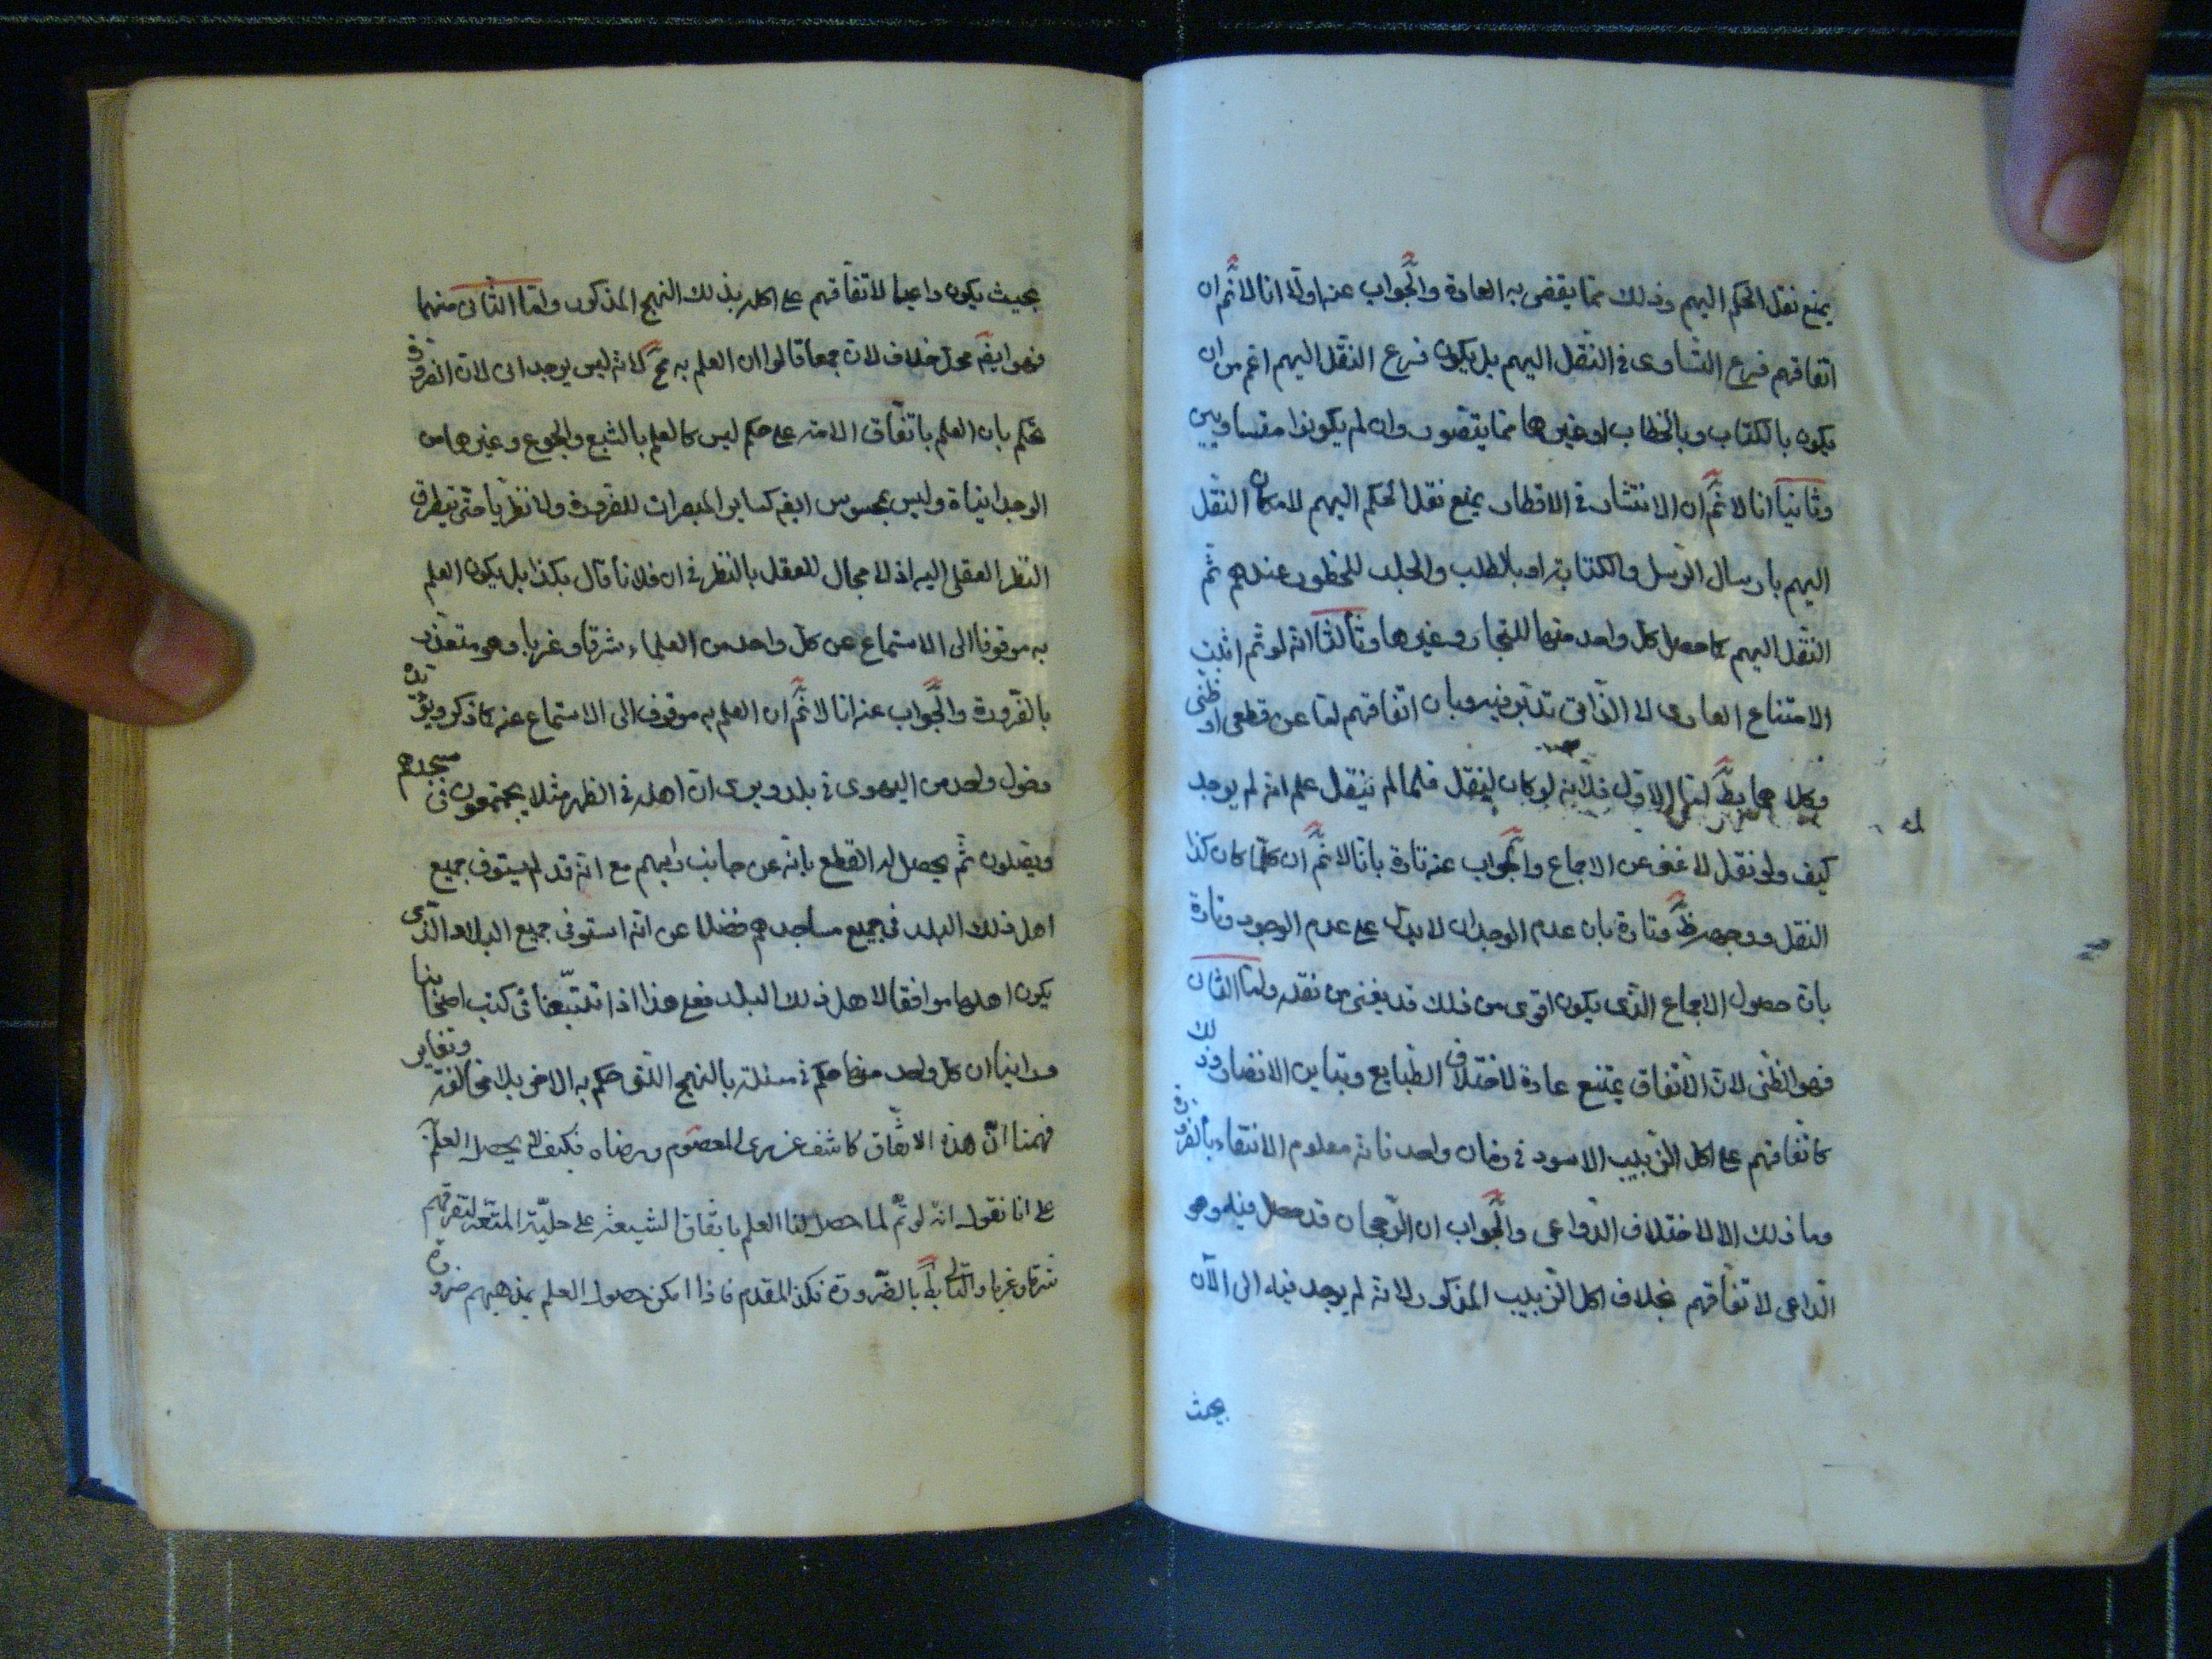 يمنع نقل الحكم اليهم وذلك مما يقضى به العادة والجواب عنه اولا انا لا نم ان
اتفاقهم فرع التساوى فى النقل اليهم بل يكون فرع النقل اليهم اعم من ان
يكون بالكتاب وبالخطاب او غيرها مما يتصور وان لم يكونوا متساويين
وثانيا انا لا نم ان الانتشار فى الاقطار يمنع نقل الحكم اليهم لامكان النقل
اليهم بارسال الرسل والكتابة او بالطلب والجلب للخطور عندهم ثم
النقل اليهم كما حصل كل واحد منهما للتجار وغيرها وثالثا انه لو تم اثبت
الامتناع العادى لا الذاتى تدبر فيه وبان اتفاقهم اما عن قطعى او ظنى
وكلاهما بط اما الاول فلانه لو كان لينقل فلما لم ينقل علم انه لم يوجد
كيف ولو نقل لاغنى عن الاجماع والجواب عنه تارة بانا لا نم ان كلما كان كذا
النقل ووجهه ظ وتارة بان عدم الوجدان لا يدل على عدم الوجود وتارة
بان حصول الاجماع الذى يكون اقوى من ذلك قد يغنى من نقله واما الثانى
فهو الظنى لان الاتفاق يمتنع عادة لاختلاف الطبايع وتباين الانضار وذلك
كاتفاقهم على اكل الزبيب الاسود فى زمان واحد فانه معلوم الانتفاء بالضرورة
وما ذلك الا لاختلاف الدواعى والجواب ان الرجحان قد حصل فيه وهو
الداعى لاتفاقهم بخلاف اكل الزبيب المذكور لانه لم يوجد فيه الى الآن
بحيث
بحيث يكون داعيا لاتفاقهم على اكله بذلك النهج المذكور واما الثانى منهما
فهو ايضم محل خلاف لان جمعا قالوا ان العلم به مح لانه ليس بوجدانى لان الضرورة
تحكم بان العلم باتفاق الامة على حكم ليس كالعلم بالشبع والجوع وغيرها من
الوجدانياة وليس بمحسوس ايضم كساير المبصرات للضرورة ولا نظريا حتى يتطرق
النظر العقلى اليه اذ لا مجال للعقل بالنظر فى ان فلانا قال بكذا بل يكون العلم
به موقوفا الى الاستماع عن كل واحد من العلماء شرقا وغربا وهو متعذر
بالضرورة والجواب عنه انا لا نم ان العلم به موقوف الى الاستماع عنه كما ذكر ويؤيده
دخول واحد من اليهودى فى بلد ويرى ان اهله فى الظهر مثلا يجتمعون فى مسجدهم
ويصلون ثم يحصل له القطع بانه عن جانب رايهم مع انه قد لم يستوف جميع
اهل ذلك البلد فى جميع مساجدهم فضلا عن انه استوفى جميع البلاد الذى
يكون اهلها موافقا لاهل ذلك البلد فعلى هذا اذا تتبعنا فى كتب اصحابنا
وراينا ان كل واحد منها حكم فى مسئلة بالنهج الذى حكم به الاخر بلا مخالفة وتغاير
فهمنا ان هذه الاتفاق كاشف عن راى المعصوم ورضاه فكيف لا يحصل العلم
على انا نقول انه لو تم لما حصل لنا العلم باتفاق الشيعة على حلية المتعة لتفرقهم
شرقا وغربا والتالى بط بالضرورة فكذا المقدم فاذا امكن حصول العلم بمذهبهم ضرورة